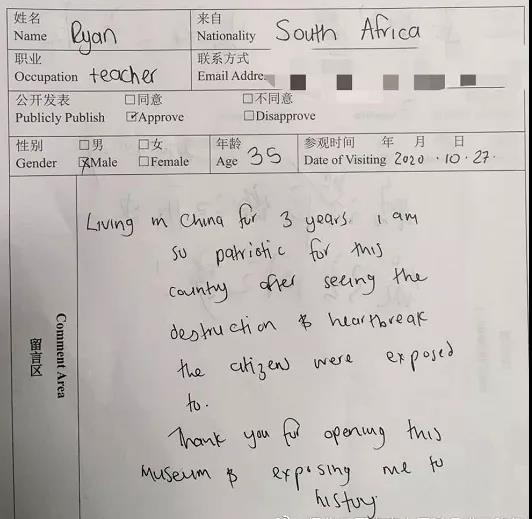 姓名 来自
Name Ryan Nationality South Africa
职业 联系方式
Occupation teacher Email Addre
公开发表 □同意 □不同意
Publicly Publish ☑Approve □Disapprove
性别 □男 □女 年龄 参观时间 年 月 日
Gender ☒Male □Female Age 35 Date of Visiting 2020 · 10 · 27.
留言区
Comment Area
Living in China for 3 years. I am
so patriotic for this
country after seeing the
destruction & heartbreak
the citizens were exposed
to.
Thank you for opening this
Museum & exposing me to
history